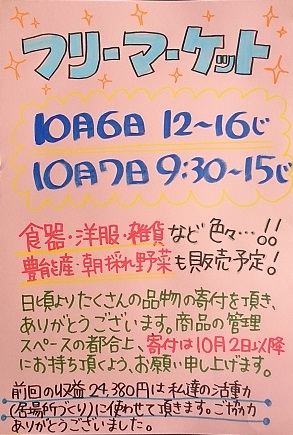 フリーマーケット
10月6日 12～16じ
10月7日 9:30～15じ
食器・洋服・雑貨 など 色々…!!
豊能産・朝採れ野菜も販売予定!
日頃よりたくさんの品物の寄付を頂き、
ありがとうございます。商品の管理
スペースの都合上、寄付は10月2日以降
にお持ち頂くよう、お願い申し上げます。
前回の収益24,380円は私達の活動力
(居場所づくり)に使わせて頂きます。ご協力
ありがとうございました。